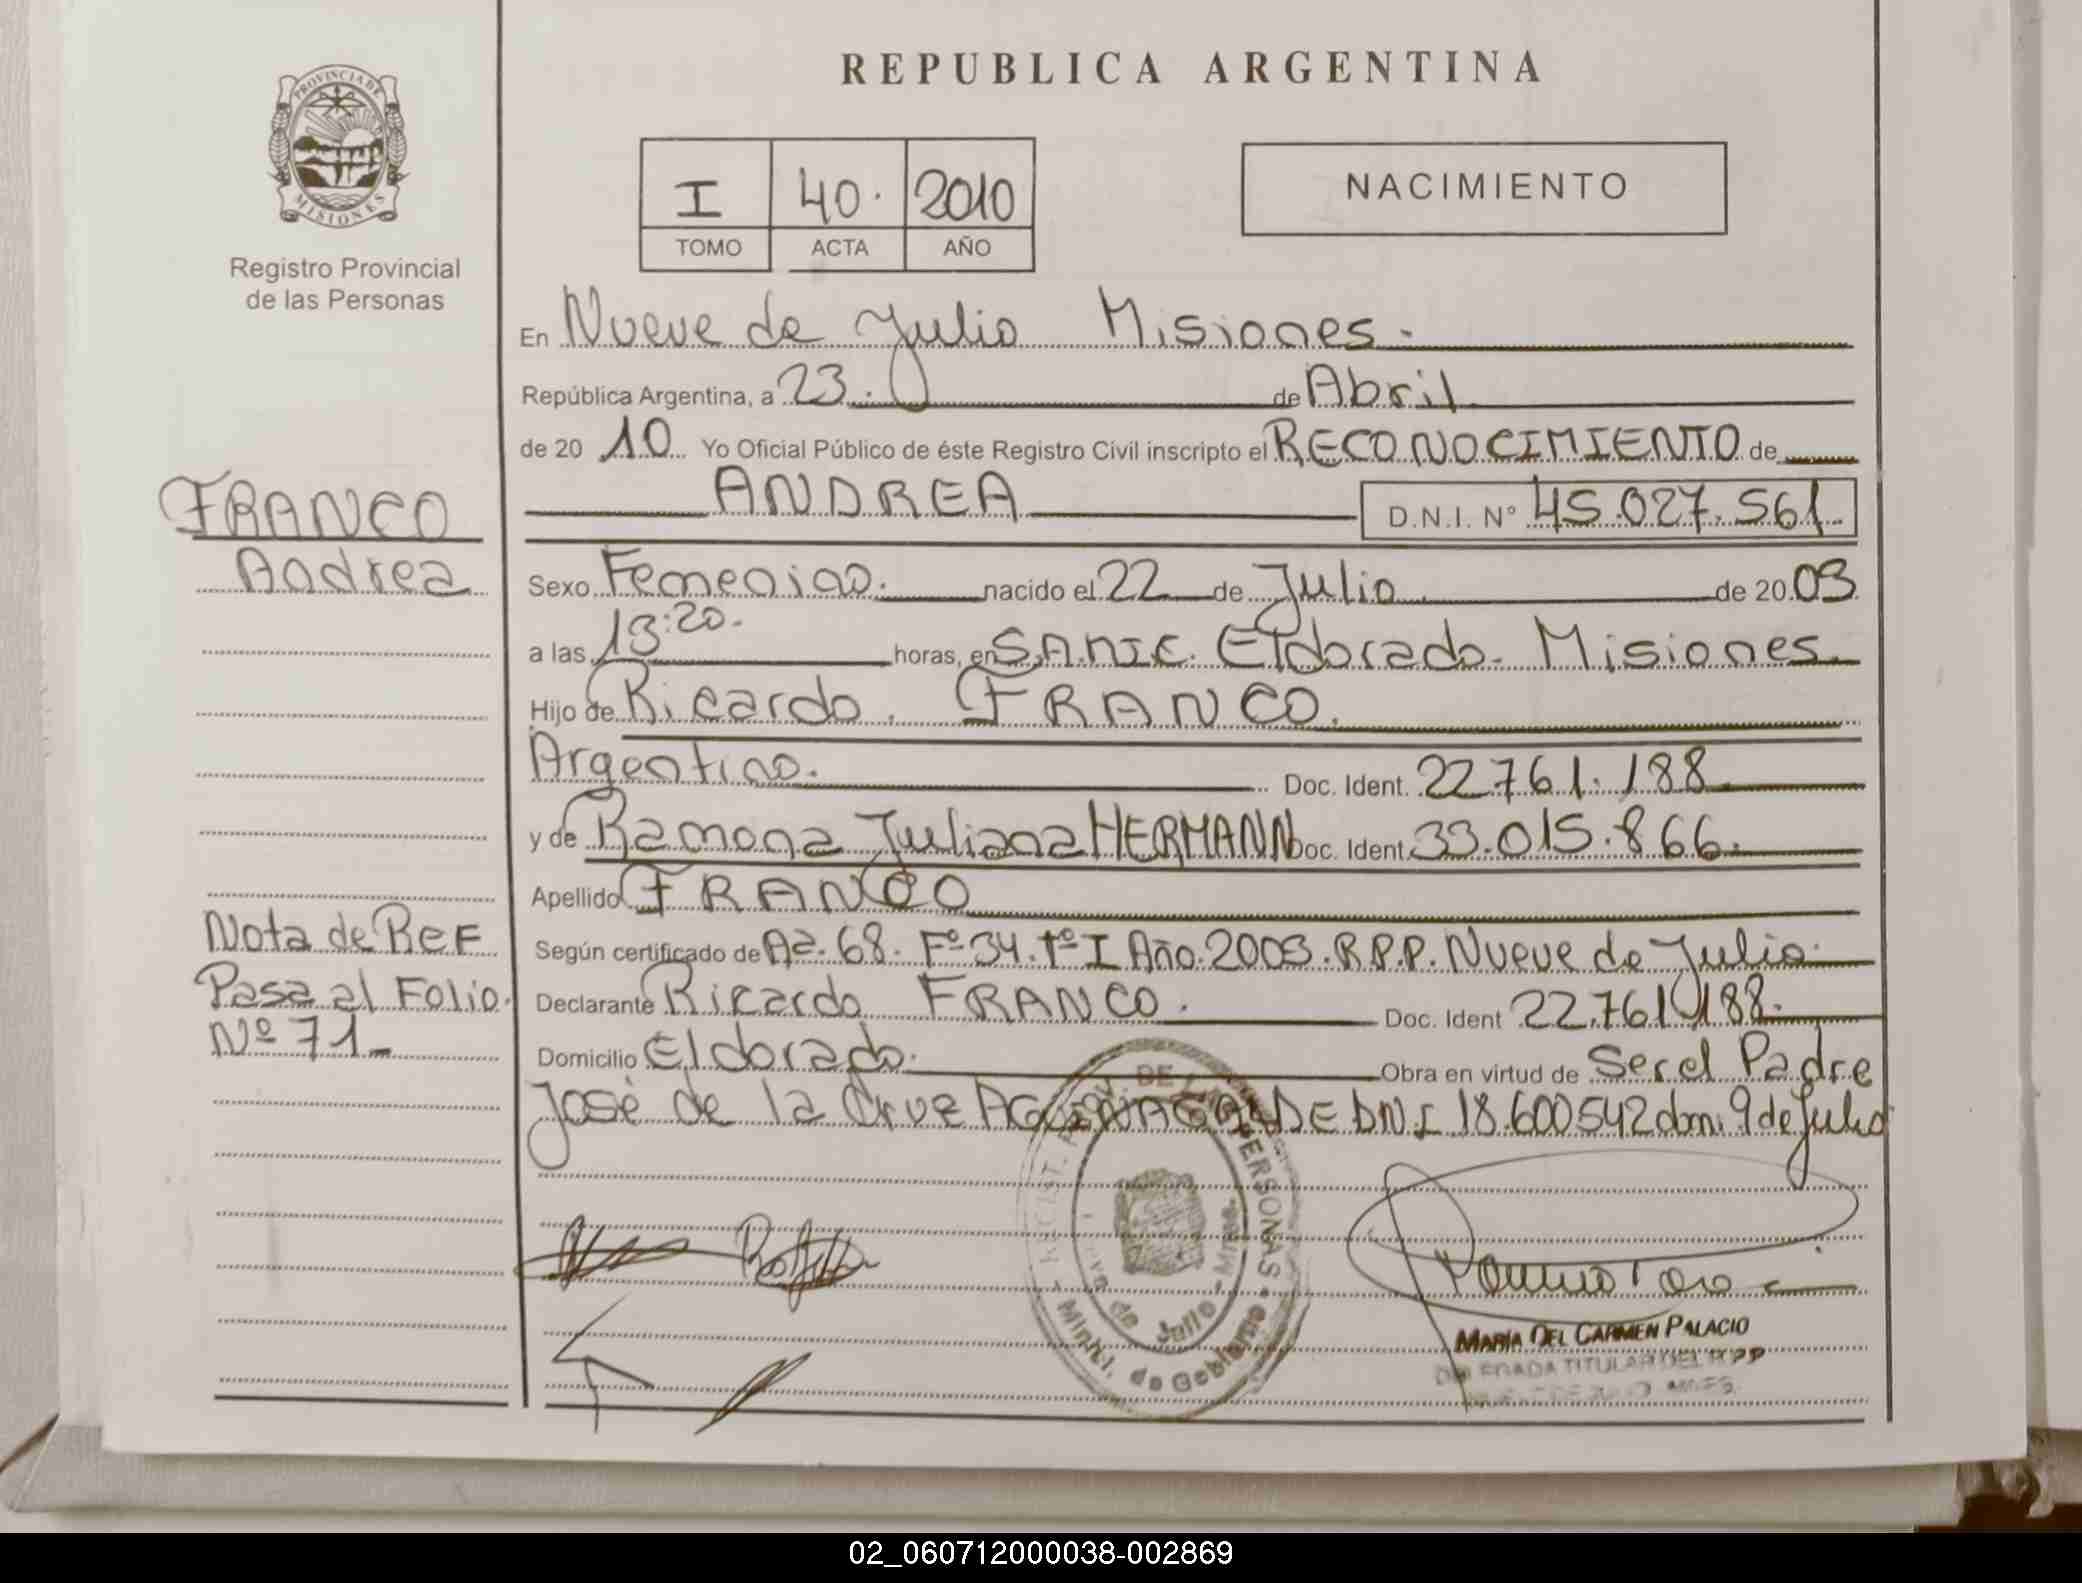 PROVINCIA DE
MISIONES
Registro Provincial
de las Personas
REPUBLICA ARGENTINA
I 40. 2010
TOMO ACTA AÑO
NACIMIENTO
En Nueve de Julio Misiones.
República Argentina, a 23. de Abril
de 20 10 Yo Oficial Público de éste Registro Civil inscripto el RECONOCIMIENTO de
ANDREA D.N.I. N° 45.027.561
FRANCO
Andrea
Sexo Femenino. nacido el 22 de Julio de 20 03
a las 13:20. horas, en S.A.M.I.C. Eldorado. Misiones
Hijo de Ricardo FRANCO.
Argentino. Doc. Ident. 22.761.188
y de Ramona Juliana HERMANN Doc. Ident 33.015.866.
Apellido FRANCO
Según certificado de Aª. 68. Fº 34. tº I Año. 2003. R.P.P. Nueve de Julio
Declarante Ricardo FRANCO. Doc. Ident 22.761.188.
Domicilio Eldorado. Obra en virtud de Ser el Padre
José de la Cruz AGUINAGALDE DNI 18.600542 dom. 9 de Julio
Nota de Ref
Pasa al Folio.
Nº 71
REGIST. PROV. DE LAS PERSONAS
Nueve de Julio - Mnes.
Minist. de Gobierno
MARIA DEL CARMEN PALACIO
DELEGADA TITULAR DEL R P P
02_060712000038-002869